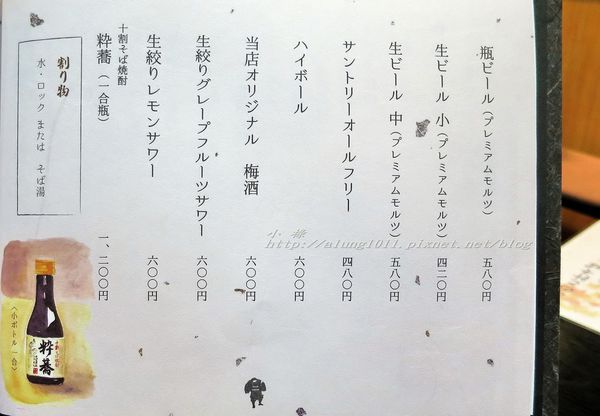 瓶ビール(プレミアムモルツ) 五八〇円
生ビール 小(プレミアムモルツ) 四二〇円
生ビール 中(プレミアムモルツ) 五八〇円
サントリーオールフリー 四八〇円
ハイボール 六〇〇円
当店オリジナル 梅酒 六〇〇円
生絞りグレープフルーツサワー 六〇〇円
生絞りレモンサワー 六〇〇円
十割そば焼酎
粋蕎(一合瓶) 一、二〇〇円
割り物
水・ロック または そば湯
(小ボトル 一合)
粋蕎
小祿
http://alung1011.pixnet.net/blog